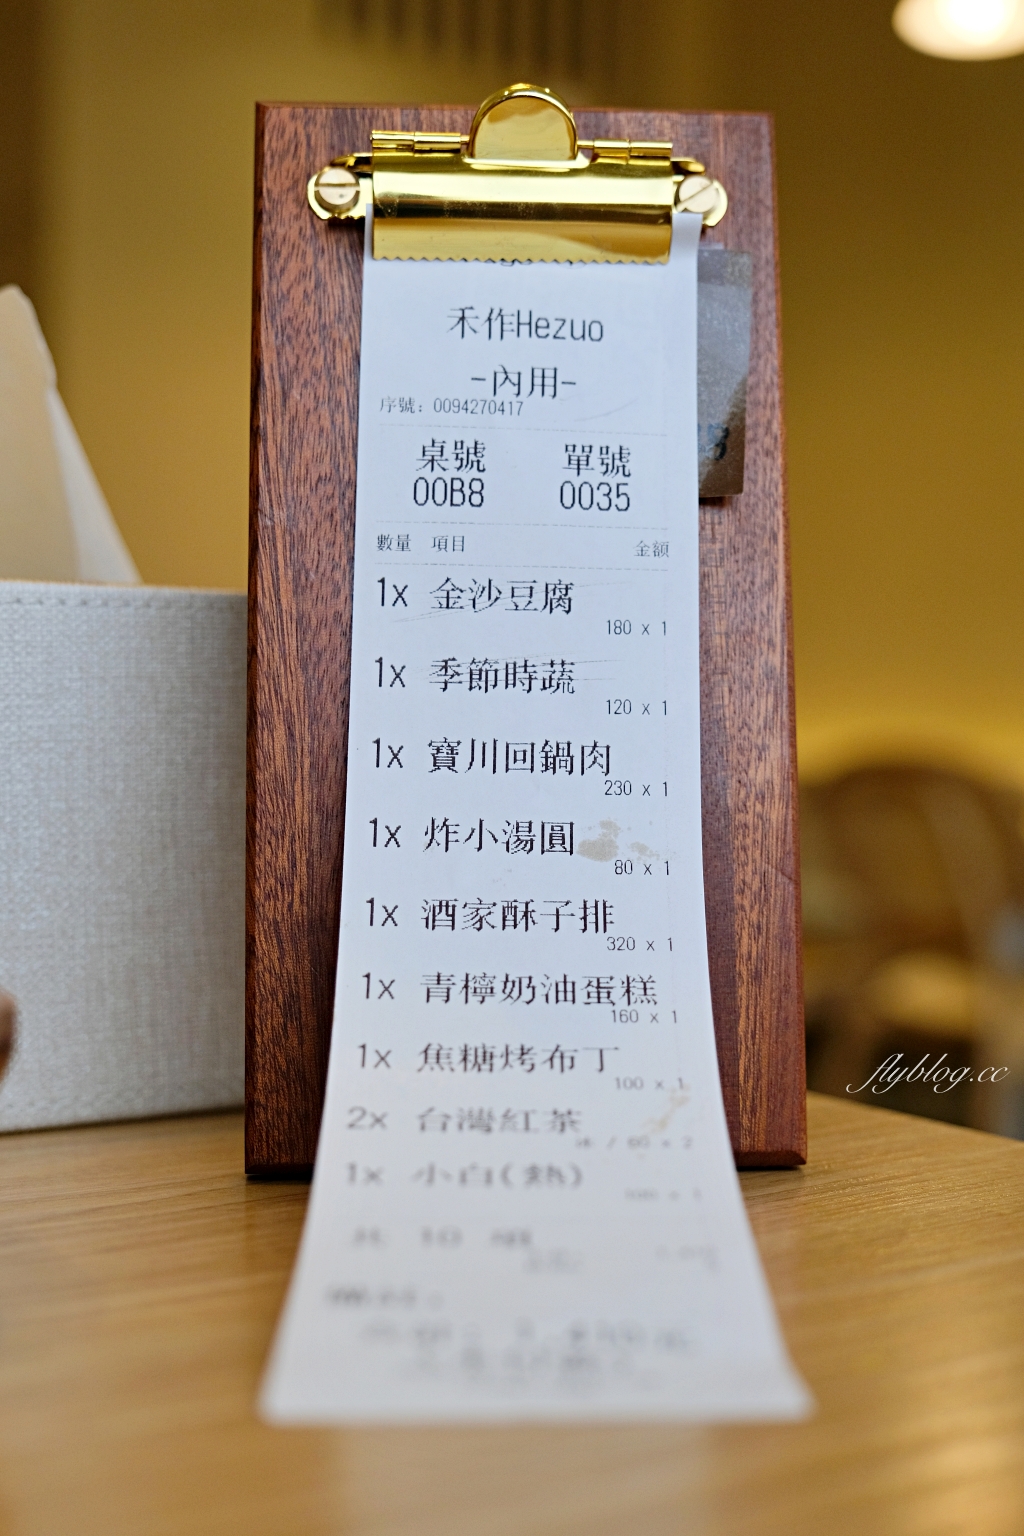 禾作Hezuo
-內用-
序號: 0094270417
桌號 單號
00B8 0035
數量 項目 金額
1x 金沙豆腐
180 x 1
1x 季節時蔬
120 x 1
1x 寶川回鍋肉
230 x 1
1x 炸小湯圓
80 x 1
1x 酒家酥子排
320 x 1
1x 青檸奶油蛋糕
160 x 1
1x 焦糖烤布丁
100 x 1
2x 台灣紅茶
/ 60 x 2
1x 小白(熱)
共 10 項
flyblog.cc